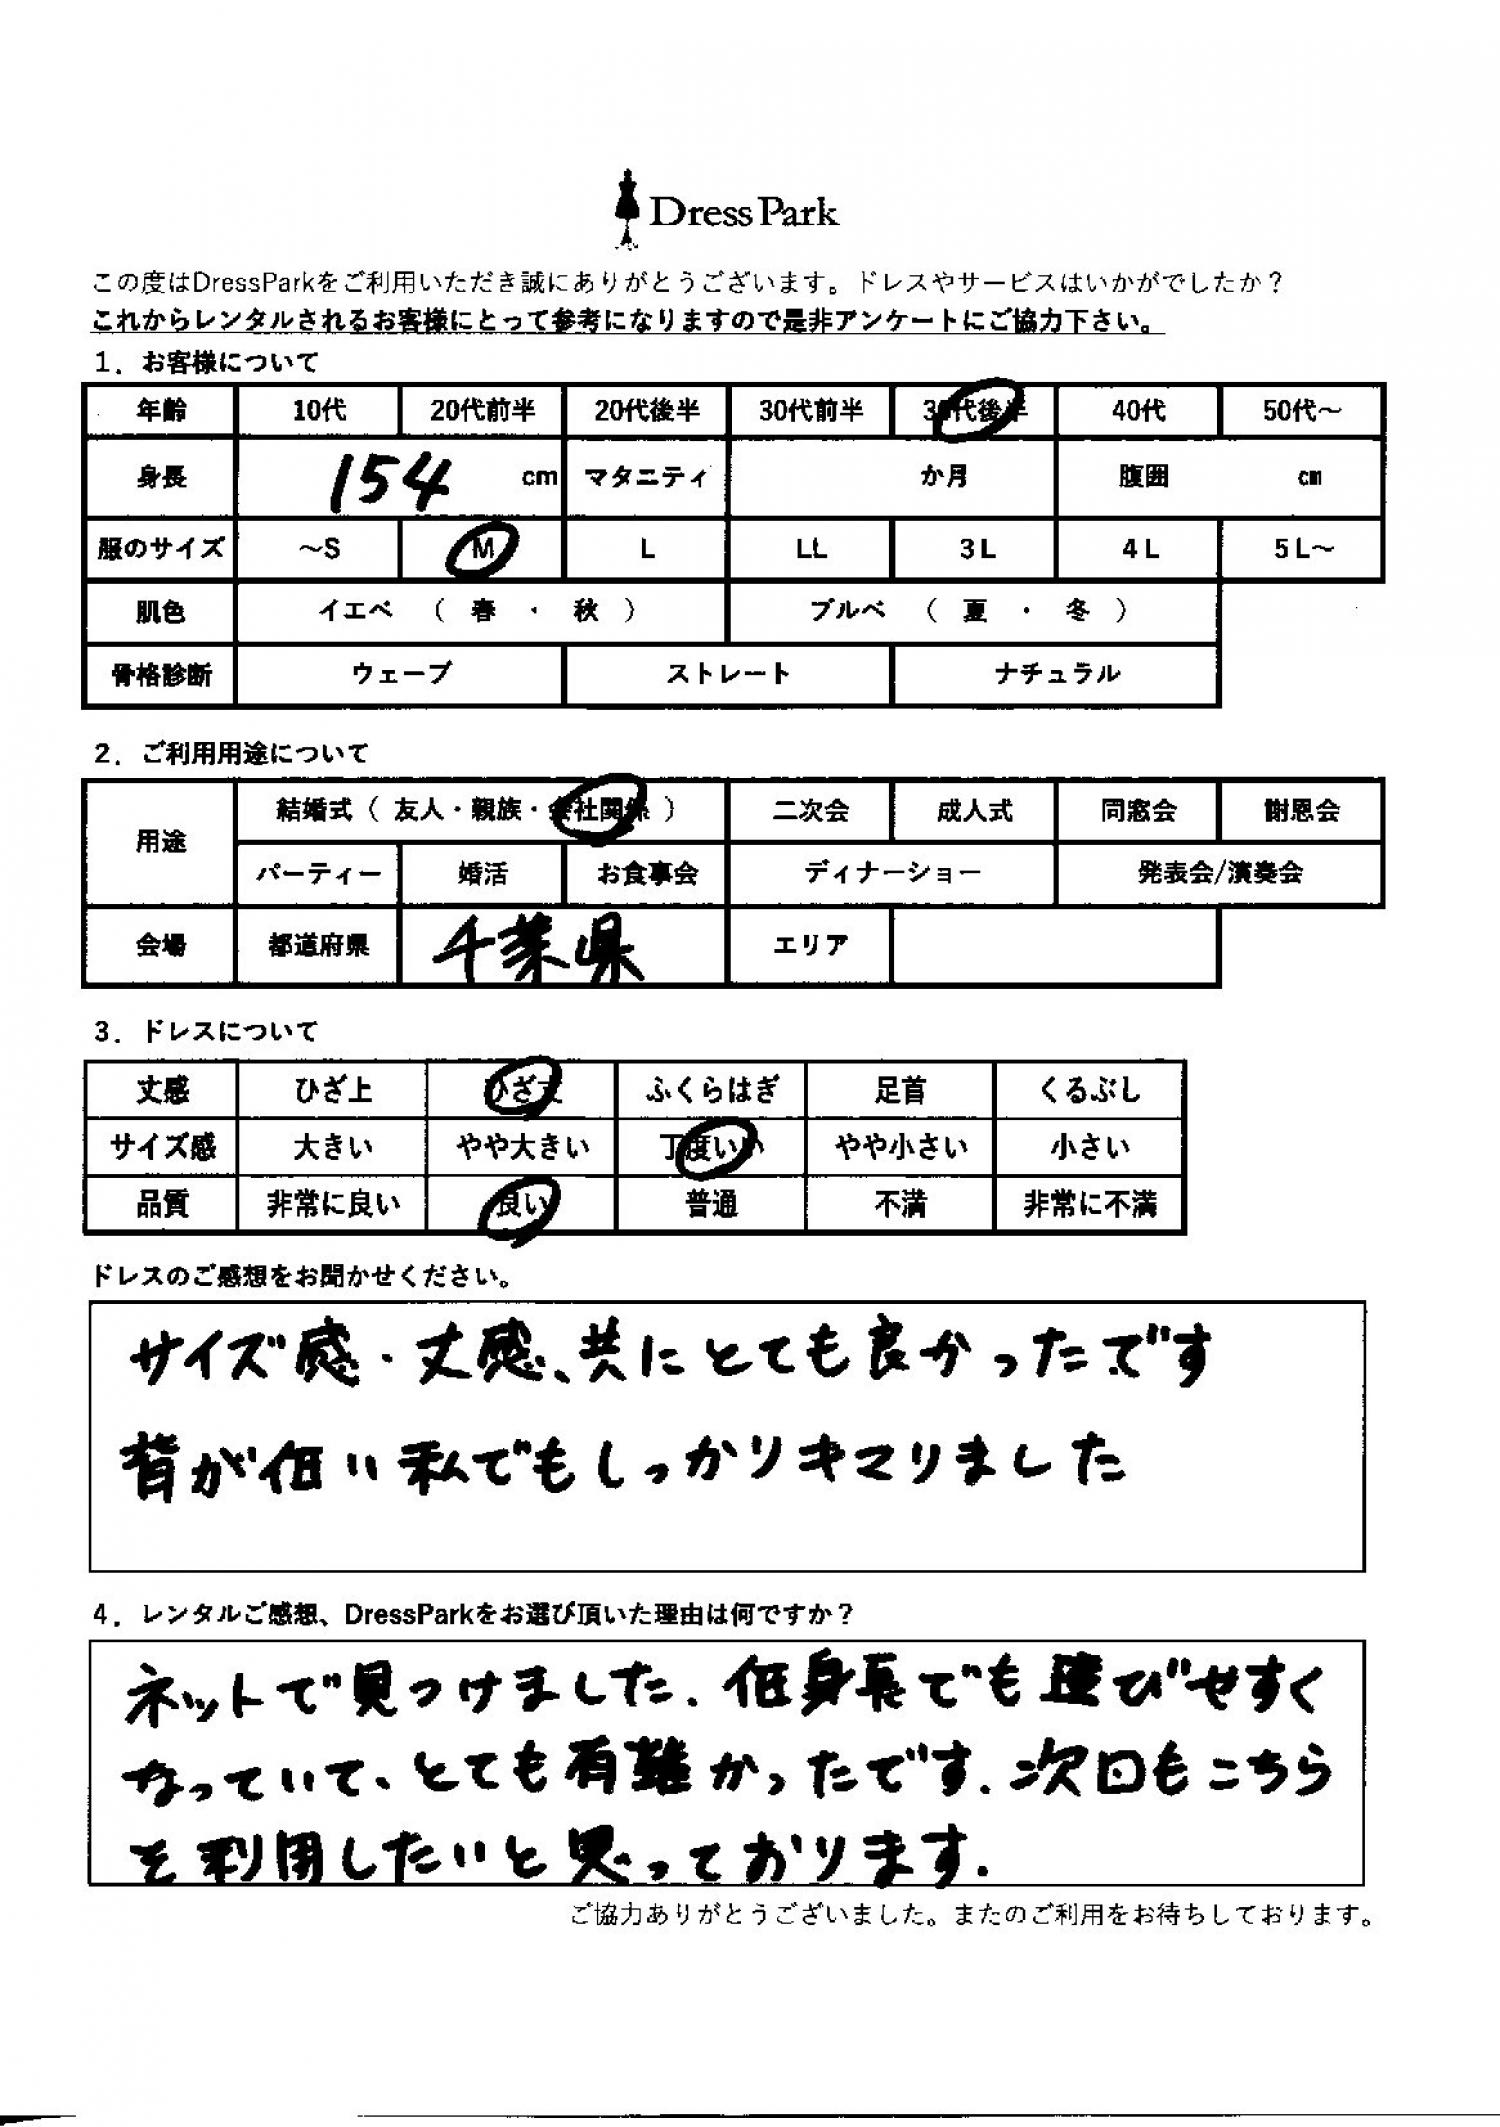 Dress Park
この度はDressParkをご利用いただき誠にありがとうございます。ドレスやサービスはいかがでしたか？
これからレンタルされるお客様にとって参考になりますので是非アンケートにご協力下さい。
1．お客様について
年齢 10代 20代前半 20代後半 30代前半 30代後半 40代 50代～
身長 154 cm マタニティ か月 腹囲 cm
服のサイズ ～S M L LL 3L 4L 5L～
肌色 イエベ （ 春 ・ 秋 ） ブルベ （ 夏 ・ 冬 ）
骨格診断 ウェーブ ストレート ナチュラル
2．ご利用用途について
用途 結婚式（ 友人・親族・会社関係 ） 二次会 成人式 同窓会 謝恩会
パーティー 婚活 お食事会 ディナーショー 発表会/演奏会
会場 都道府県 千葉県 エリア
3．ドレスについて
丈感 ひざ上 ひざ丈 ふくらはぎ 足首 くるぶし
サイズ感 大きい やや大きい 丁度いい やや小さい 小さい
品質 非常に良い 良い 普通 不満 非常に不満
ドレスのご感想をお聞かせください。
サイズ感・丈感、共にとても良かったです
背が低い私でもしっかりキマリました
4．レンタルご感想、DressParkをお選び頂いた理由は何ですか？
ネットで見つけました．低身長でも選びやすく
なっていて、とても有難かったです．次回もこちら
を利用したいと思っております．
ご協力ありがとうございました。またのご利用をお待ちしております。